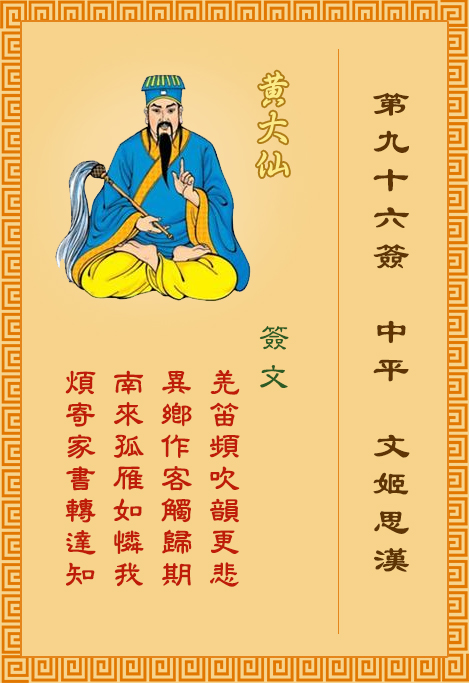 第九十六簽 中平 文姬思漢
黃大仙
簽文
羌笛頻吹韻更悲
異鄉作客觸歸期
南來孤雁如憐我
煩寄家書轉達知